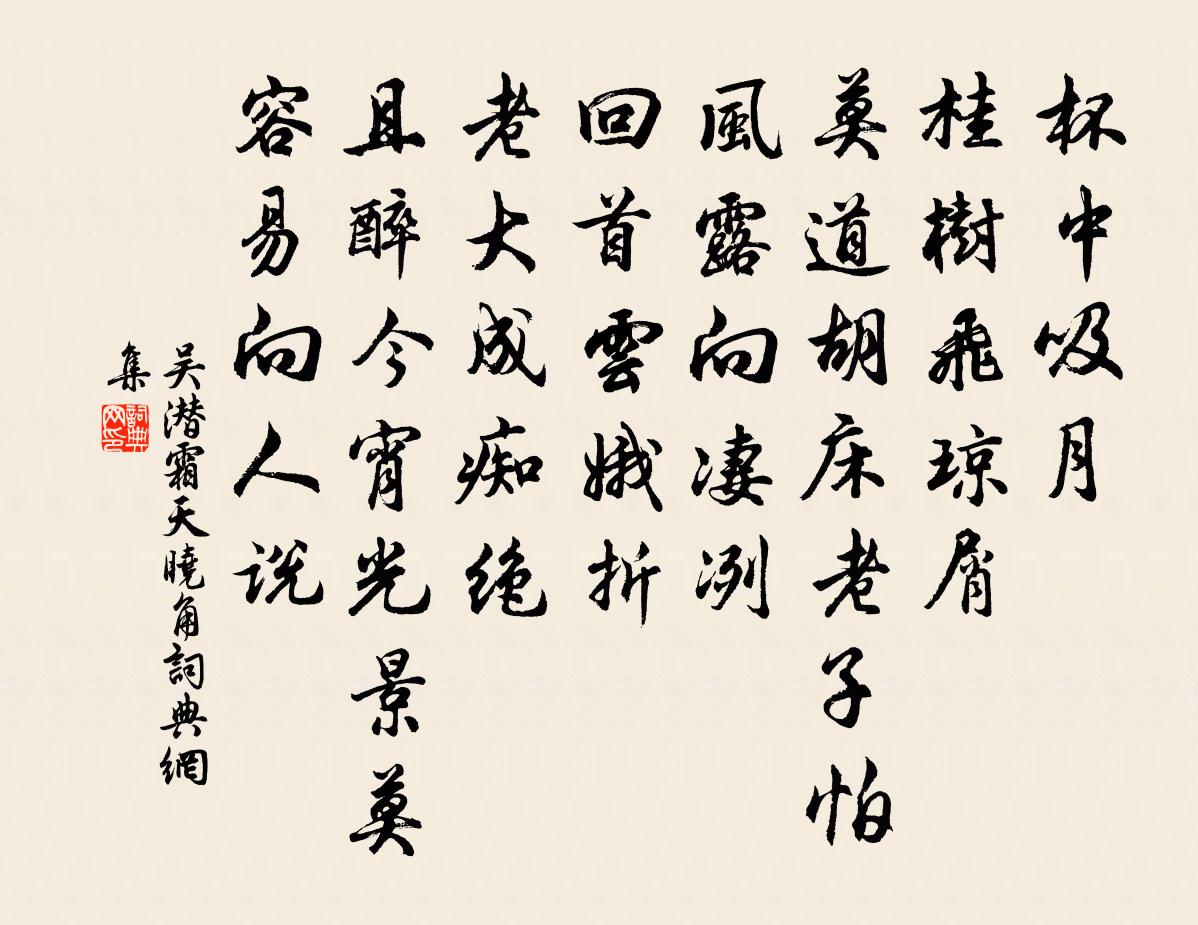 杯中吸月
桂樹飛琼屑
莫道胡床老子怕
風露向凄冽
回首雲娥折
老大成痴绝
且醉今宵光景莫
容易向人説
吴潜霜天曉角詞典網
集
詞典网印